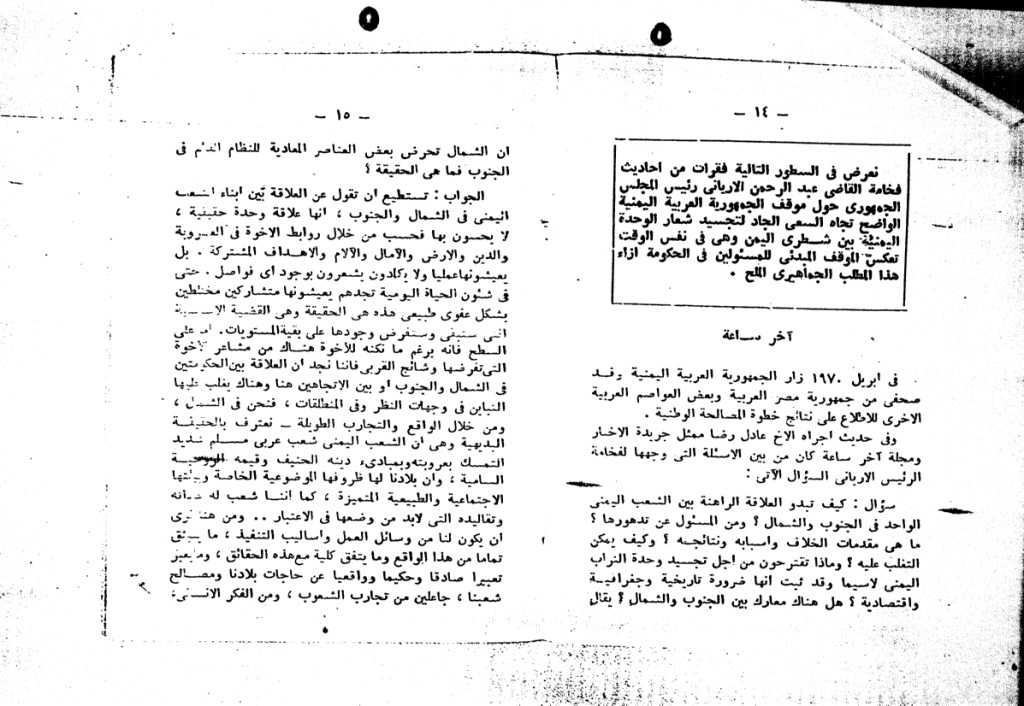 ٥
٥
— ١٤ —
نعرض فى السطور التالية فقرات من أحاديث
فخامة القاضى عبد الرحمن الاريانى رئيس المجلس
الجمهورى حول موقف الجمهورية العربية اليمنية
الواضح تجاه السعى الجاد لتجسيد شعار الوحدة
اليمنية بين شطرى اليمن وهى فى نفس الوقت
تعكس الموقف المبدئى للمسئولين فى الحكومة ازاء
هذا المطلب الجماهيرى الملح .
آخر ساعة
فى ابريل ١٩٧٠ زار الجمهورية العربية اليمنية وفد
صحفى من جمهورية مصر العربية وبعض العواصم العربية
الاخرى للاطلاع على نتائج خطوة المصالحة الوطنية .
وفى حديث اجراه الاخ عادل رضا ممثل جريدة الاخبار
ومجلة آخر ساعة كان من بين الاسئلة التى وجهها لفخامة
الرئيس الاريانى السؤال الآتى :
سؤال : كيف تبدو العلاقة الراهنة بين الشعب اليمنى
الواحد فى الجنوب والشمال ؟ ومن المسئول عن تدهورها ؟
ما هى مقدمات الخلاف واسبابه ونتائجه ؟ وكيف يمكن
التغلب عليه ؟ وماذا تقترحون من اجل تجسيد وحدة التراب
اليمنى لاسيما وقد ثبت انها ضرورة تاريخية وجغرافية
واقتصادية ؟ هل هناك معارك بين الجنوب والشمال ؟ يقال
— ١٥ —
ان الشمال تحرض بعض العناصر المعادية للنظام القائم فى
الجنوب فما هى الحقيقة ؟
الجواب : نستطيع ان نقول عن العلاقة بين ابناء الشعب
اليمنى فى الشمال والجنوب ، انها علاقة وحدة حقيقية ،
لا يحسون بها فحسب من خلال روابط الاخوة فى العروبة
والدين والارض والآمال والآلام والاهداف المشتركة . بل
يعيشونها عمليا ولا يكادون يشعرون بوجود اى فواصل . حتى
فى شئون الحياة اليومية تجدهم يعيشونها متشاركين مختلطين
بشكل عفوى طبيعى هذه هى الحقيقة وهى القضية
التى ستبقى وستفرض وجودها على بقية المستويات. اما على
السطح فانه برغم ما نكنه للاخوة هناك من مشاعر الاخوة
التى تفرضها وشائج القربى فاننا نجد ان العلاقة بين الحكومتين
فى الشمال والجنوب او بين الاتجاهين هنا وهناك يغلب عليها
التباين فى وجهات النظر وفى المنطلقات ، فنحن فى الشمال ،
ومن خلال الواقع والتجارب الطويلة — نعترف بالحقيقة
البديهية وهى ان الشعب اليمنى شعب عربى مسلم شديد
التمسك بعروبته وبمبادىء دينه الحنيف وقيمه الروحية
السامية ، وان بلادنا لها ظروفها الموضوعية الخاصة وبيئتها
الاجتماعية والطبيعية المتميزة ، كما اننا شعب له عاداته
وتقاليده التى لابد من وضعها فى الاعتبار .. ومن هنا نرى
ان يكون لنا من وسائل العمل واساليب التنفيذ ، ما ينبثق
تماما من هذا الواقع وما يتفق كلية مع هذه الحقائق ، وما يعبر
تعبيرا صادقا وحكيما وواقعيا عن حاجات بلادنا ومصالح
شعبنا ، جاعلين من تجارب الشعوب ، ومن الفكر الانسانى،